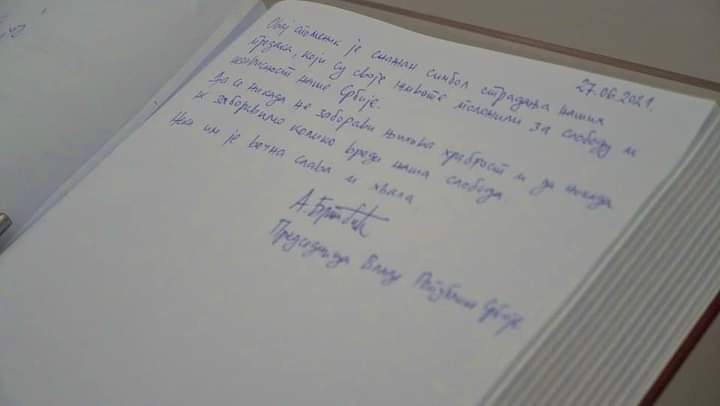 27.06.2021.
Овај споменик је снажан симбол страдања наших
предака, који су своје животе положили за слободу и
независност наше Србије.
Да се никада не заборави њихова храброст и да никада
не заборавимо колико вреди наша слобода.
Нека им је вечна слава и хвала
А. Брнабић
Председница Владе Републике Србије